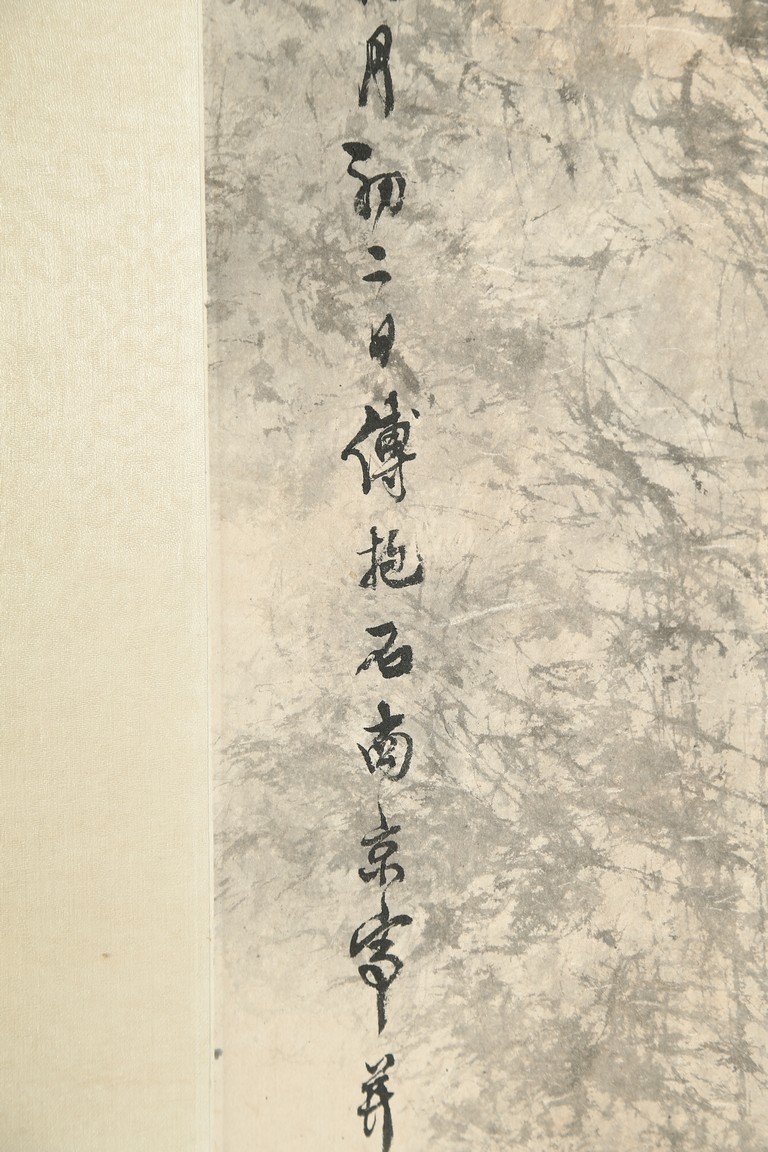 月初二日傅抱石南京寫并